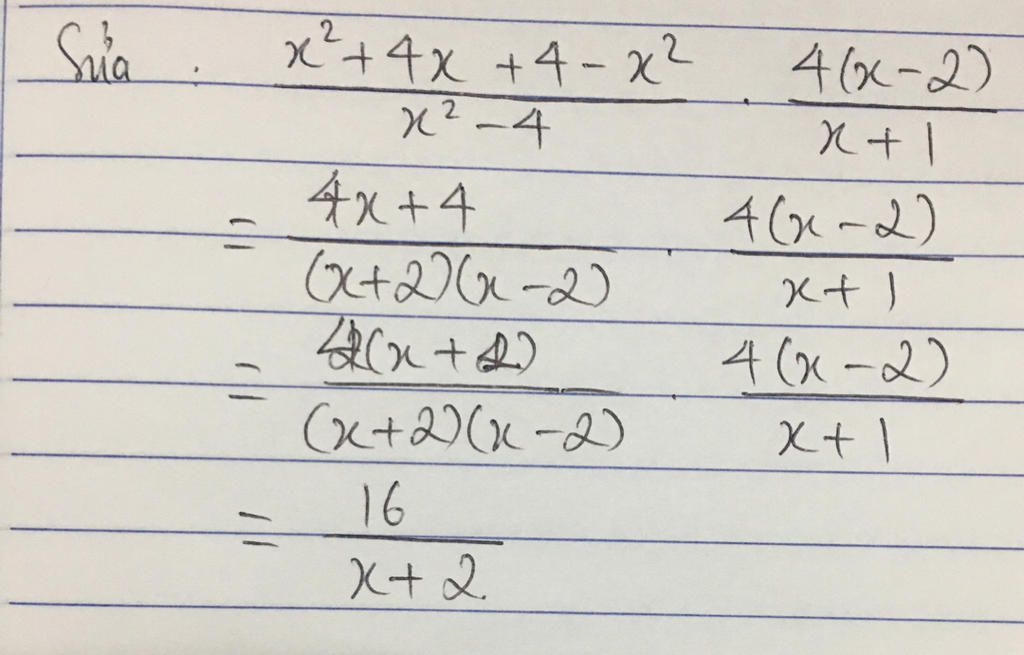 Sửa . x² + 4x + 4 - x² / x² - 4 . 4(x - 2) / x + 1
= 4x + 4 / (x+2)(x - 2) . 4(x - 2) / x + 1
= 4(x + 1) / (x+2)(x - 2) . 4(x - 2) / x + 1
= 16 / x + 2